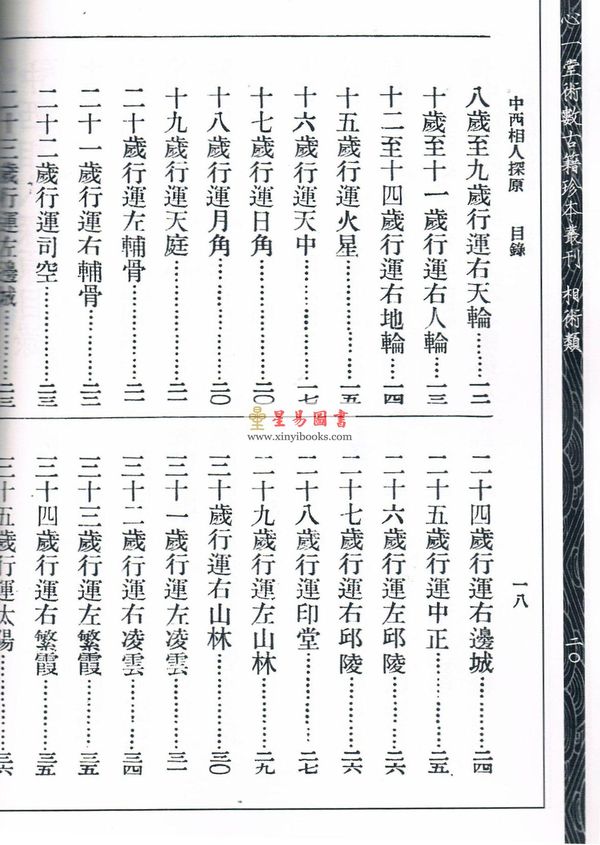 心一堂術數古籍珍本叢刊 相術類 二〇
中西相人探原 目錄 一八
八歲至九歲行運右天輪……一二
十歲至十一歲行運右人輪……一三
十二至十四歲行運右地輪……一四
十五歲行運火星……一五
十六歲行運天中……一七
十七歲行運日角……二〇
十八歲行運月角……二〇
十九歲行運天庭……二一
二十歲行運左輔骨……二一
二十一歲行運右輔骨……二二
二十二歲行運司空……二三
二十三歲行運左邊城……二三
星易圖書
www.xinyibooks.com
二十四歲行運右邊城……二四
二十五歲行運中正……二五
二十六歲行運左邱陵……二六
二十七歲行運右邱陵……二六
二十八歲行運印堂……二七
二十九歲行運左山林……二九
三十歲行運右山林……三〇
三十一歲行運左凌雲……三一
三十二歲行運右凌雲……三四
三十三歲行運左繁霞……三五
三十四歲行運右繁霞……三五
三十五歲行運太陽……三六